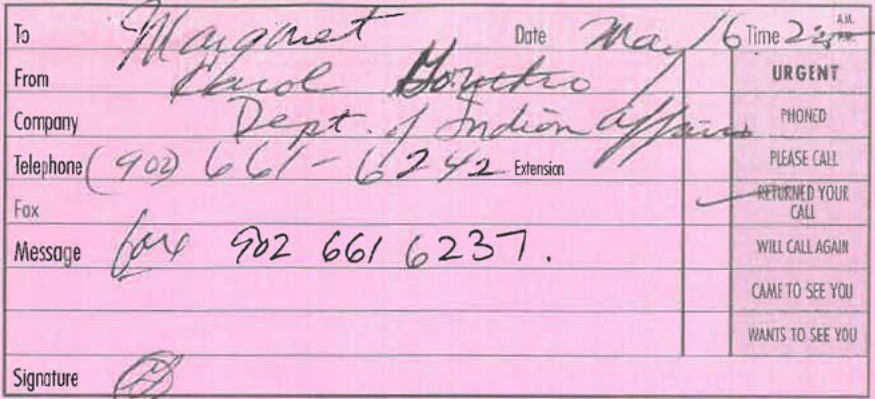 To Margaret Date May 16 Time 2:25 A.M. P.M.
From Carol
Company Dept. of Indian Affairs
Telephone (902) 661-6242 Extension
Fax
Message fax 902 661 6237.
Signature
URGENT
PHONED
PLEASE CALL
RETURNED YOUR CALL
WILL CALL AGAIN
CAME TO SEE YOU
WANTS TO SEE YOU